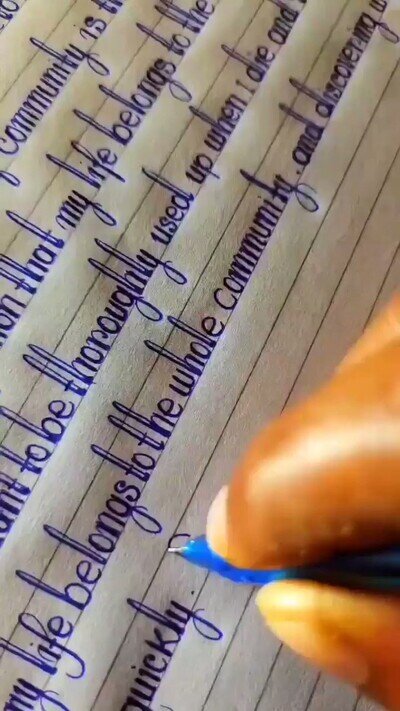 community is
on that my life belongs to the
to be thoroughly used up when i die and
my life belongs to the whole community. and discovering
quickly